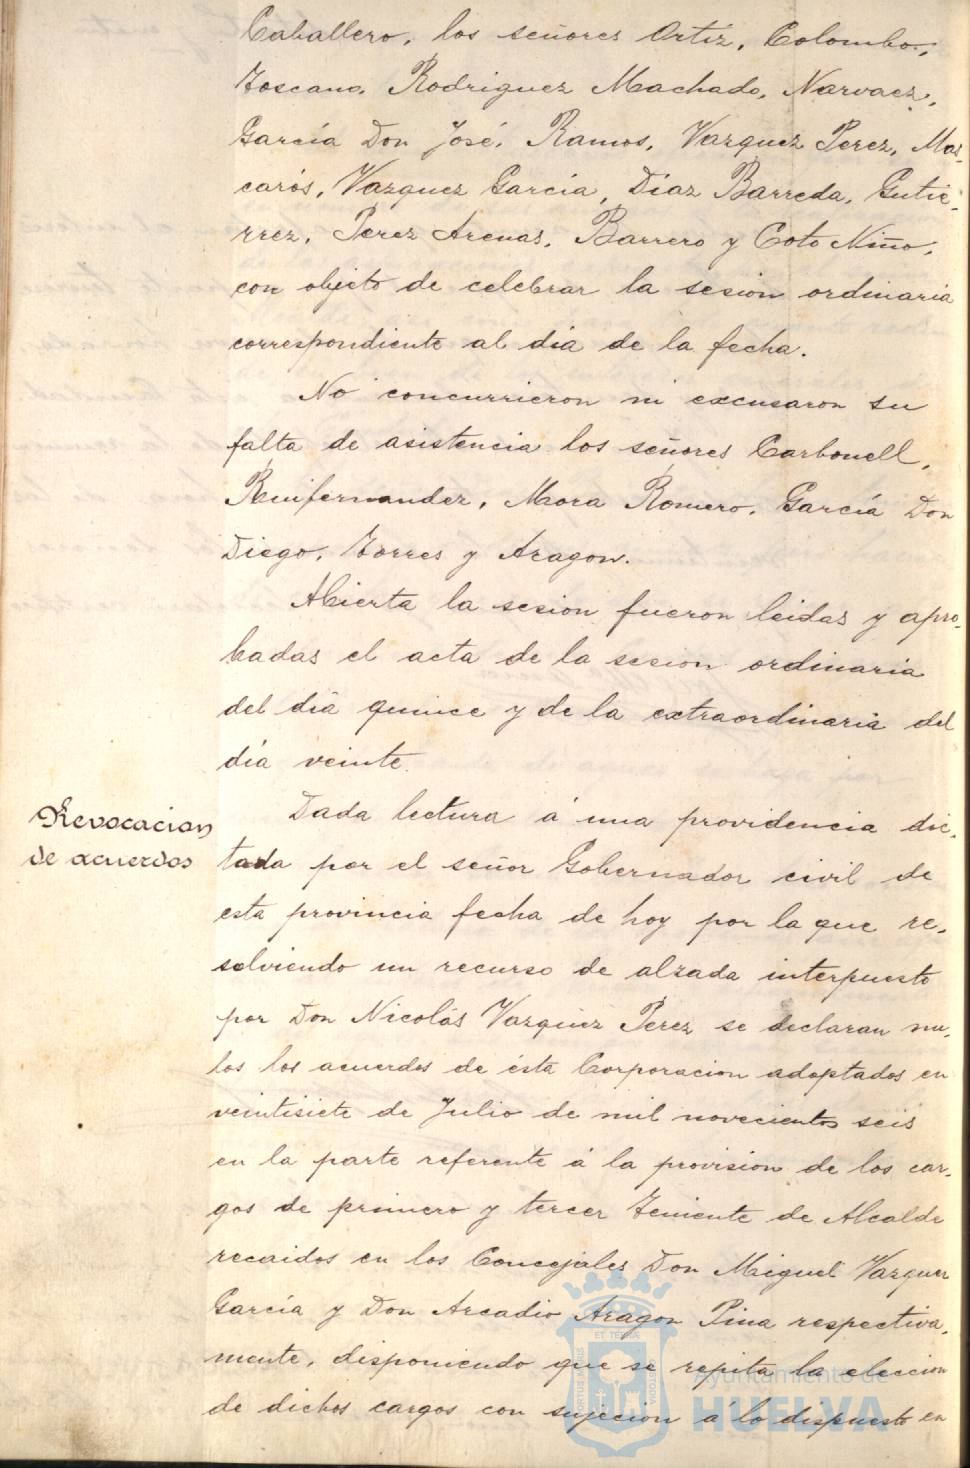 Caballero, los señores Ortiz, Colombo,
Toscano, Rodriguez Machado, Narvaez,
García Don José, Ramos, Vazquez Perez, Mas-
carós, Vazquez García, Díaz Barreda, Gutie-
rrez, Perez Arenas, Barrero y Coto Niño,
con objeto de celebrar la sesion ordinaria
correspondiente al día de la fecha.
No concurrieron ni excusaron su
falta de asistencia los señores Carbonell,
Ruifernandez, Mora Romero, García Don
Diego, Torres y Aragon.
Abierta la sesion fueron leidas y apro-
badas el acta de la sesion ordinaria
del día quince y de la extraordinaria del
día veinte.
Revocacion
de acuerdos
Dada lectura á una providencia dic-
tada por el señor Gobernador civil de
esta provincia fecha de hoy por la que re-
solviendo un recurso de alzada interpuesto
por Don Nicolás Vazquez Perez se declaran nu-
los los acuerdos de ésta Corporacion adoptados en
veintisiete de Julio de mil novecientos seis
en la parte referente á la provision de los car-
gos de primero y tercer Teniente de Alcalde
recaidos en los Concejales Don Miguel Vazquez
García y Don Arcadio Aragon Pina respectiva-
mente, disponiendo que se repita la eleccion
de dichos cargos con sujecion á lo dispuesto en
Ayuntamiento de
HUELVA